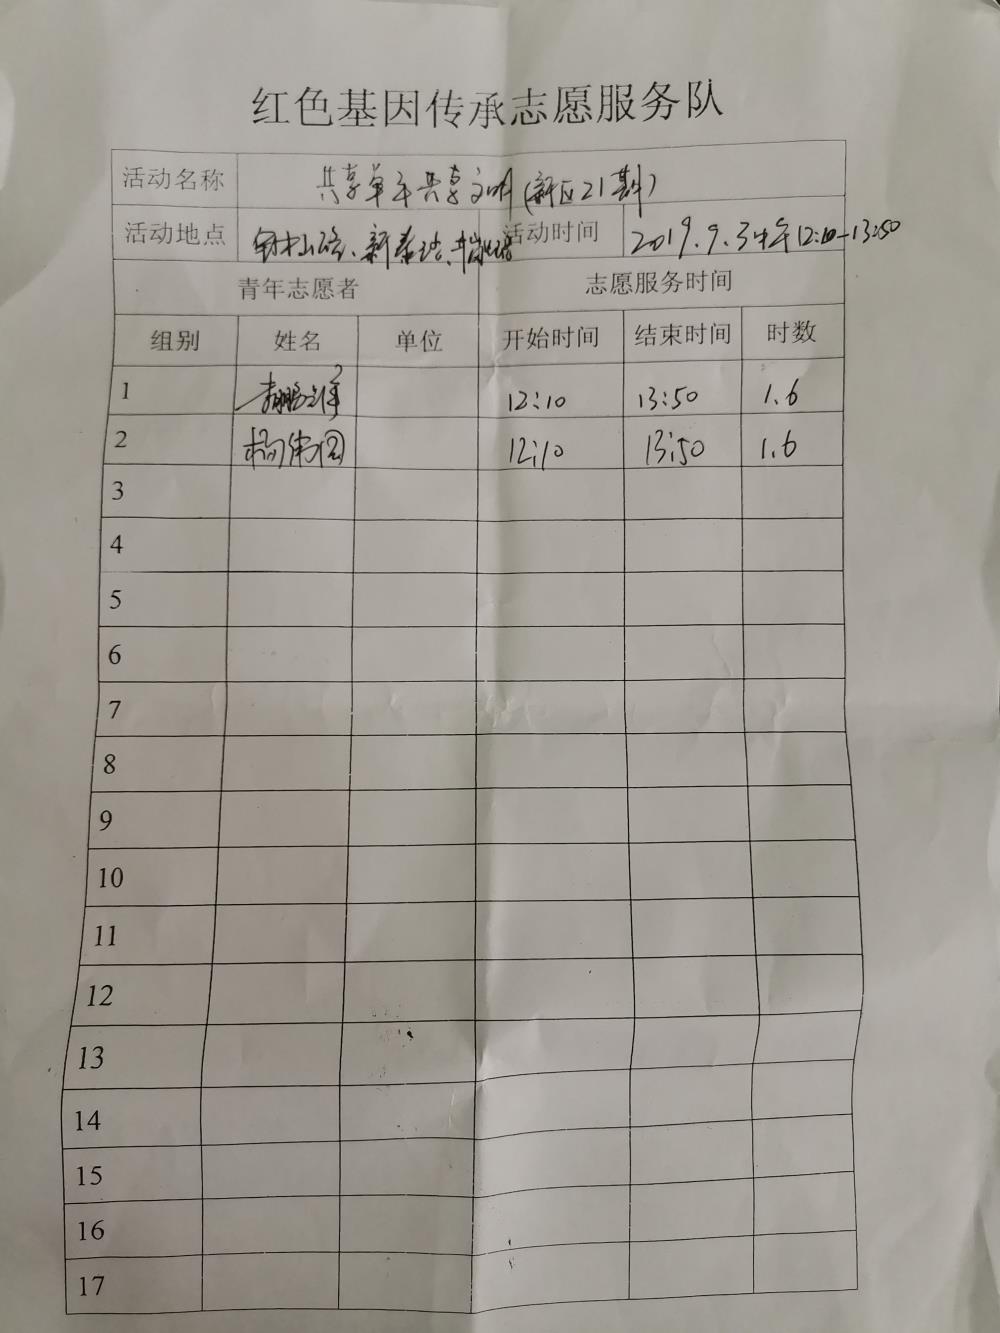 红色基因传承志愿服务队
活动名称 共享单车共享文明(新区21期)
活动地点 新泰路、 活动时间 2019.9.3中午12:10-13:50
青年志愿者 志愿服务时间
组别 姓名 单位 开始时间 结束时间 时数
1 12:10 13:50 1.6
2 杨伟国 12:10 13:50 1.6
3
4
5
6
7
8
9
10
11
12
13
14
15
16
17